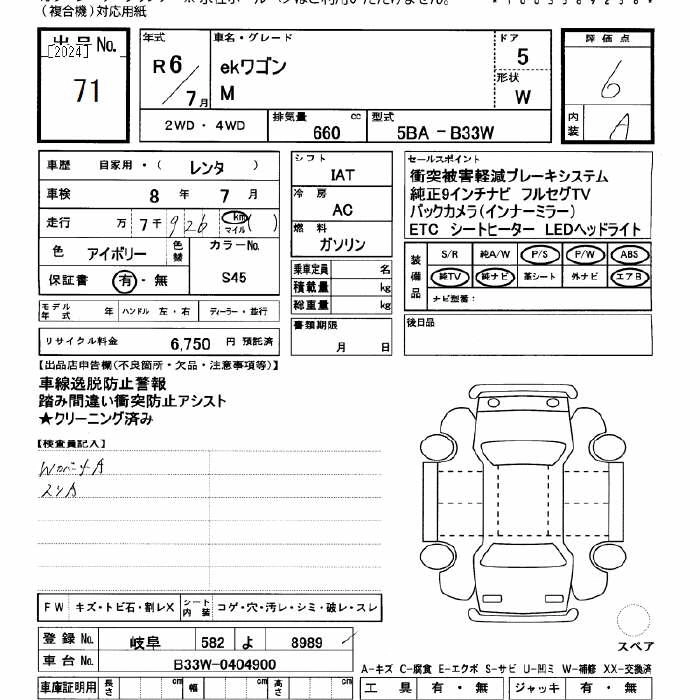 (複合機)対応用紙
出品No.
[2024]
71
年式
R6/7月
車名・グレード
ekワゴン
M
ドア
5
形状
W
評価点
6
内装
A
2WD・4WD
排気量
660 cc
型式
5BA－B33W
車歴 自家用・( レンタ )
車検 8年 7月
走行 万 7千 926 km マイル ( )
色 アイボリー 色替
カラーNo.
S45
保証書 有・無
シフト
IAT
冷房
AC
燃料
ガソリン
乗車定員 名
積載量 kg
総重量 kg
書類期限
月 日
セールスポイント
衝突被害軽減ブレーキシステム
純正9インチナビ フルセグTV
バックカメラ(インナーミラー)
ETC シートヒーター LEDヘッドライト
装備品
S/R 純A/W P/S P/W ABS
純TV 純ナビ 革シート 外ナビ エアB
ナビ型番：
後日品
モデル年式 年 ハンドル 左・右 ディーラー・並行
リサイクル料金 6,750 円 預託済
【出品店申告欄(不良箇所・欠品・注意事項等)】
車線逸脱防止警報
踏み間違い衝突防止アシスト
★クリーニング済み
【検査員記入】
FW キズ・トビ石・割レX シート内装 コゲ・穴・汚レ・シミ・破レ・スレ
登録No. 岐阜 582 よ 8989
車台No. B33W-0404900
車庫証明用 長さ cm 幅 cm 高さ cm
スペア
A-キズ C-腐食 E-エクボ S-サビ U-凹ミ W-補修 XX-交換済
工具 有・無 ジャッキ 有・無